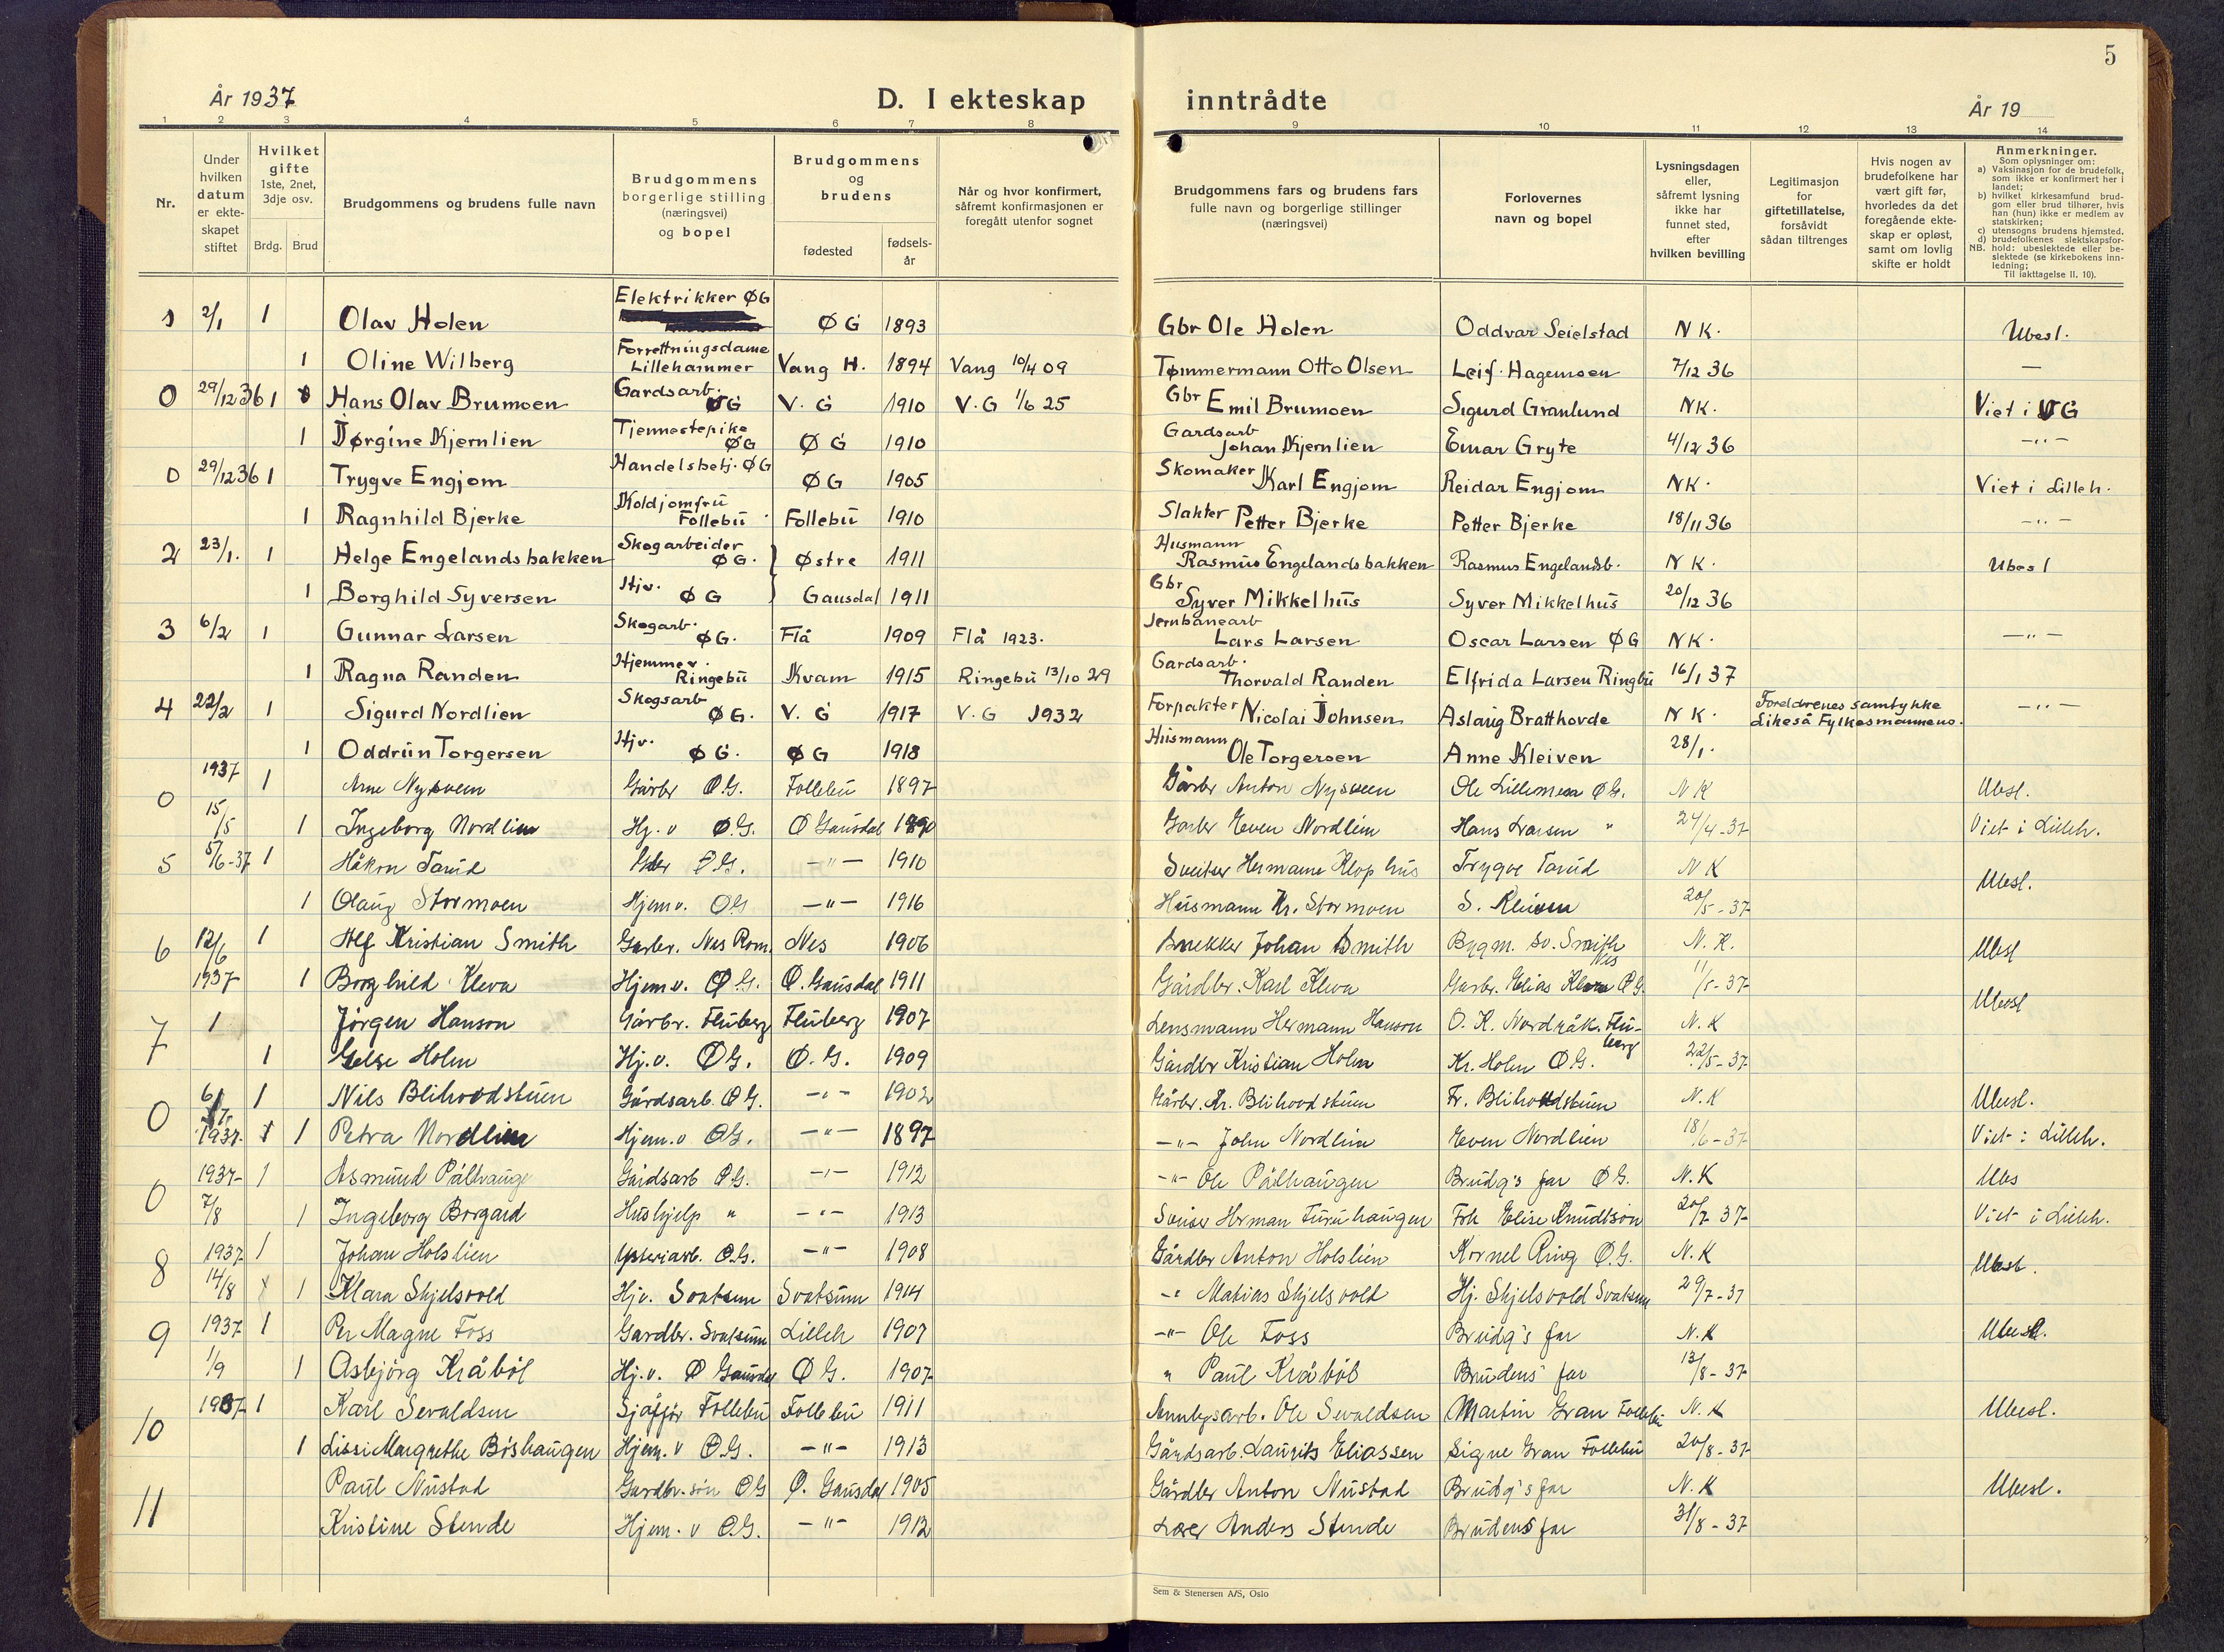 5
År 1937
D. I ekteskap inntrådte
År 19
1 2 3 4 5 6 7 8 9 10 11 12 13 14
Nr.
Under hvilken datum er ekteskapet stiftet
Hvilket gifte 1ste, 2net, 3dje osv.
Brdg. Brud
Brudgommens og brudens fulle navn
Brudgommens borgerlige stilling (næringsvei) og bopel
Brudgommens og brudens
fødested
fødsels-år
Når og hvor konfirmert, såfremt konfirmasjonen er foregått utenfor sognet
Brudgommens fars og brudens fars fulle navn og borgerlige stillinger (næringsvei)
Forlovernes navn og bopel
Lysningsdagen eller, såfremt lysning ikke har funnet sted, efter hvilken bevilling
Legitimasjon for giftetillatelse, forsåvidt sådan tiltrenges
Hvis nogen av brudefolkene har vært gift før, hvorledes da det foregående ekteskap er opløst, samt om lovlig skifte er holdt
Anmerkninger.
Som oplysninger om:
a) Vaksinasjon for de brudefolk, som ikke er konfirmert her i landet;
b) hvilket kirkesamfund brudgom eller brud tilhører, hvis han (hun) ikke er medlem av statskirken;
c) utensogns brudens hjemsted.
d) brudefolkenes slektskapsforhold: ubeslektede eller beslektede (se kirkebokens innledning;
NB. Til iakttagelse II, 10).
1 2/1 1 Olav Holen Elektrikker ØG ØG 1893 Gbr Ole Holen Oddvar Seielstad NK. Ubesl.
1 Oline Wilberg Forrettningsdame Lillehammer Vang H. 1894 Vang 10/4 09 Tømmermann Otto Olsen Leif Hagemoen 7/12 36 —
0 29/12 36 1 Hans Olav Brumoen Gardsarb. ØG V. G 1910 V.G 1/6 25 Gbr Emil Brumoen Sigurd Granlund NK. Viet i VG
1 Jørgine Kjernlien Tjennestepike ØG ØG 1910 Gardsarb Johan Kjernlien Einar Gryte 4/12 36 —"—
0 29/12 36 1 Trygve Engjom Handelsbetj. ØG ØG 1905 Skomaker Karl Engjom Reidar Engjom NK. Viet i Lilleh.
1 Ragnhild Bjerke Koldjomfru Follebu Follebu 1910 Slakter Petter Bjerke Petter Bjerke 18/11 36 —"—
2 23/1. 1 Helge Engelandsbakken Skogarbeider ØG. Østre 1911 Husmann Rasmus Engelandsbakken Rasmus Engelandsb. NK. Ubesl
1 Borghild Syversen Hjv. ØG Gausdal 1911 Gbr Syver Mikkelhus Syver Mikkelhus 20/12 36
3 6/2 1 Gunnar Larsen Skogarb. ØG. Flå 1909 Flå 1923. Jernbanearb Lars Larsen Oscar Larsen ØG NK. —"—
1 Ragna Randen Hjemmev. Ringebu Kvam 1915 Ringebu 13/10 29 Gardsarb. Thorvald Randen Elfrida Larsen Ringbu 16/1 37
4 22/2 1 Sigurd Nordlien Skogsarb ØG. V. G 1917 V.G 1932 Forpakter Nicolai Johnsen Aslaug Bratthovde NK. Foreldrenes samtykke Likeså Fylkesmannens. —"—
1 Oddrun Torgersen Hjv. ØG. ØG 1918 Husmann Ole Torgersen Anne Kleiven 28/1.
0 1937 15/5 1 Arne Nysveen Gårbr Ø.G. Follebu 1897 Gårbr Anton Nysveen Ole Lillemoen ØG. NK Ubesl.
1 Ingeborg Nordlien Hj. v Ø.G. Ø Gausdal 1890 Garbr Even Nordlien Hans Larsen " 24/4-37 Viet i Lilleh.
5 5/6-37 1 Håkon Tarud Gbr Ø.G. —"— 1910 Sveitser Hermann Klophus Trygve Tarud NK Ubesl.
1 Olaug Stormoen Hjem v. ØG —"— 1916 Husmann Kr. Stormoen S. Kleiven 20/5-37
6 12/6 1937 1 Alf Kristian Smith Garbr. Nes Rom. Nes 1906 Snekker Johan Smith Bygm. Sv. Smith Nes N.K. Ubesl
1 Borghild Kleva Hjem v. Ø.G. Ø. Gausdal 1911 Gårdbr. Karl Kleva Garbr. Elias Kleva Ø G. 11/5-37
7 1 Jørgen Hanson Gårbr. Fluberg Fluberg 1907 Lensmann Hermann Hanson O. K. Nordråk. Fluberg N.K Ubesl
1 Gelse Holm Hj.v. ØG. Ø.G. 1909 Gårdbr Kristian Holm Kr. Holm ØG. 22/5-37
0 1937. 1 Nils Blihovdstuen Gårdsarb. ØG. —"— 1902 Gårbr. Kr. Blihovdstuen Fr. Blihovdstuen N.K Ubesl.
1 Petra Nordlien Hjem.v ØG. —"— 1897 —"— John Nordlien Even Nordlien 18/6-37 Viet i Lilleh.
0 1937 7/8 1 Asmund Pålhaugen Gårdsarb ØG. —"— 1912 —"— Ole Pålhaugen Brudg's far ØG. N.K Ubs
1 Ingeborg Borgard Hushjelp " —"— 1913 Sveiser Herman Furuhaugen Frk Elise Knudtson 20/7-37 Viet i Lilleh.
8 1937 14/8 1 Johan Holslien Ysteriarb. Ø.G. —"— 1908 Gårdbr Anton Holslien Kornel Ring Ø.G. N.K Ubesl.
1 Klara Skjelsvold Hjv. Svatsum Svatsum 1914 —" Matias Skjelsvold Hj. Skjelsvold Svatsum 29/7-37
9 1937 1/9 1 Per Magne Foss Gardbr. Svatsum Lilleh 1907 —"— Ole Foss Brudg's far N.K Ubesl.
1 Asbjørg Kråbøl Hj.v. Ø Gausdal ØG. 1907 " Paul Kråbøl Brudens far 13/8-37
10 1937 1 Karl Sevaldsen Sjåffør Follebu Follebu 1911 Anlegsarb. Ole Sevaldsen Martin Gran Follebu N.K Ubesl.
1 Lissi Margrethe Bøshaugen Hjem. v Ø.G. —"— 1913 Gårdsarb. Laurits Eliassen Signe Gran Follebu 20/8-37
11 Paul Nustad Gardbr.søn ØG Ø. Gausdal 1905 Gårdbr Anton Nustad Brudg's far N.K Ubesl.
Kristine Stende Hjem. v Ø.G. —"— 1912 Lærer Anders Stende Brudens far 31/8-37
Sem & Stenersen A/S, Oslo